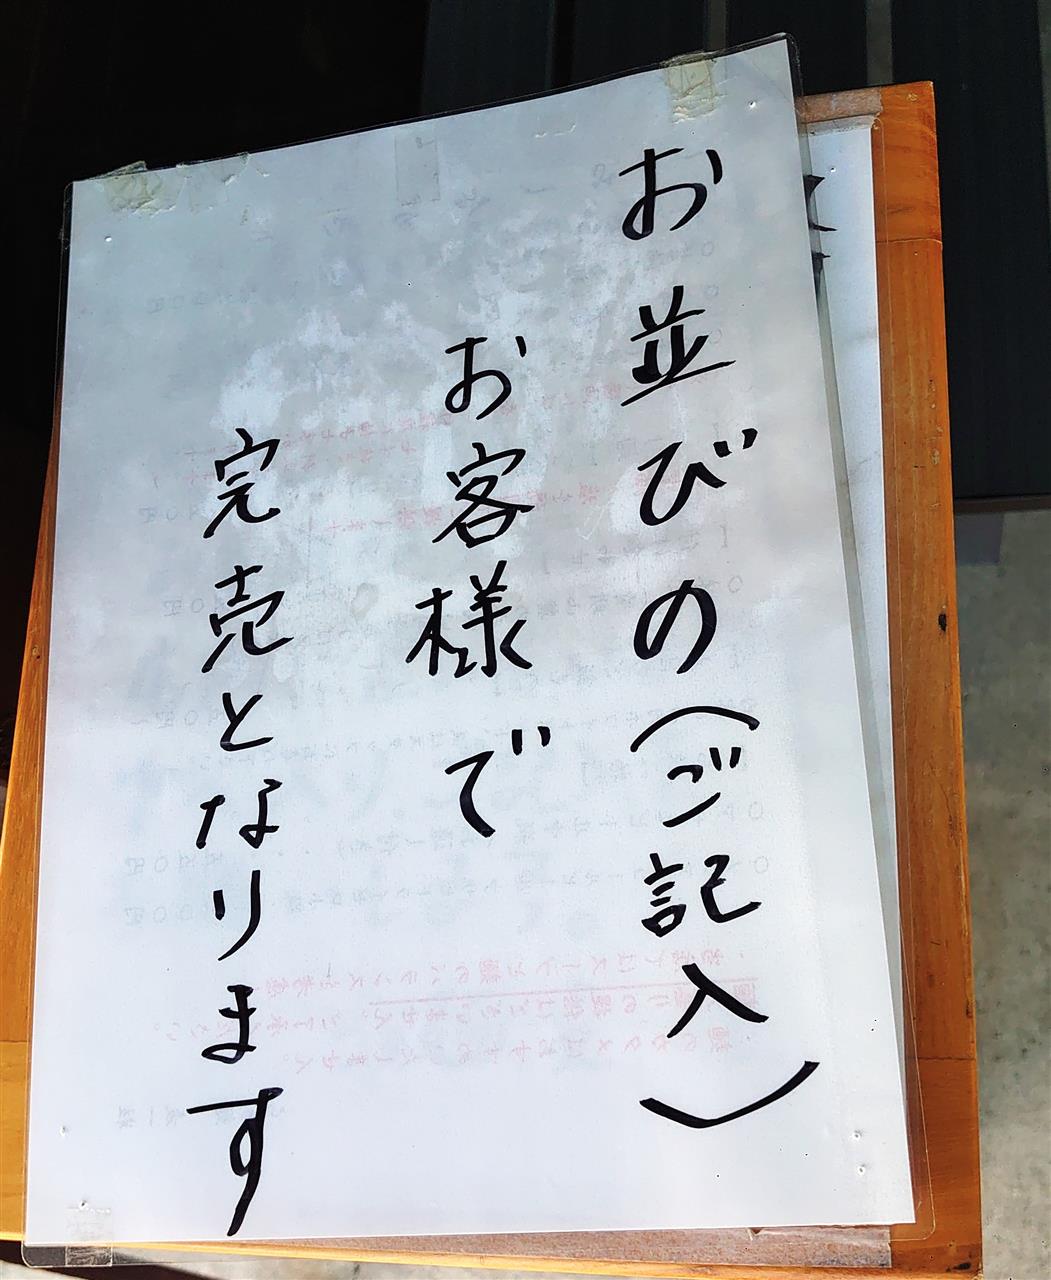 お並びの(ご記入)
お客様で
完売となります